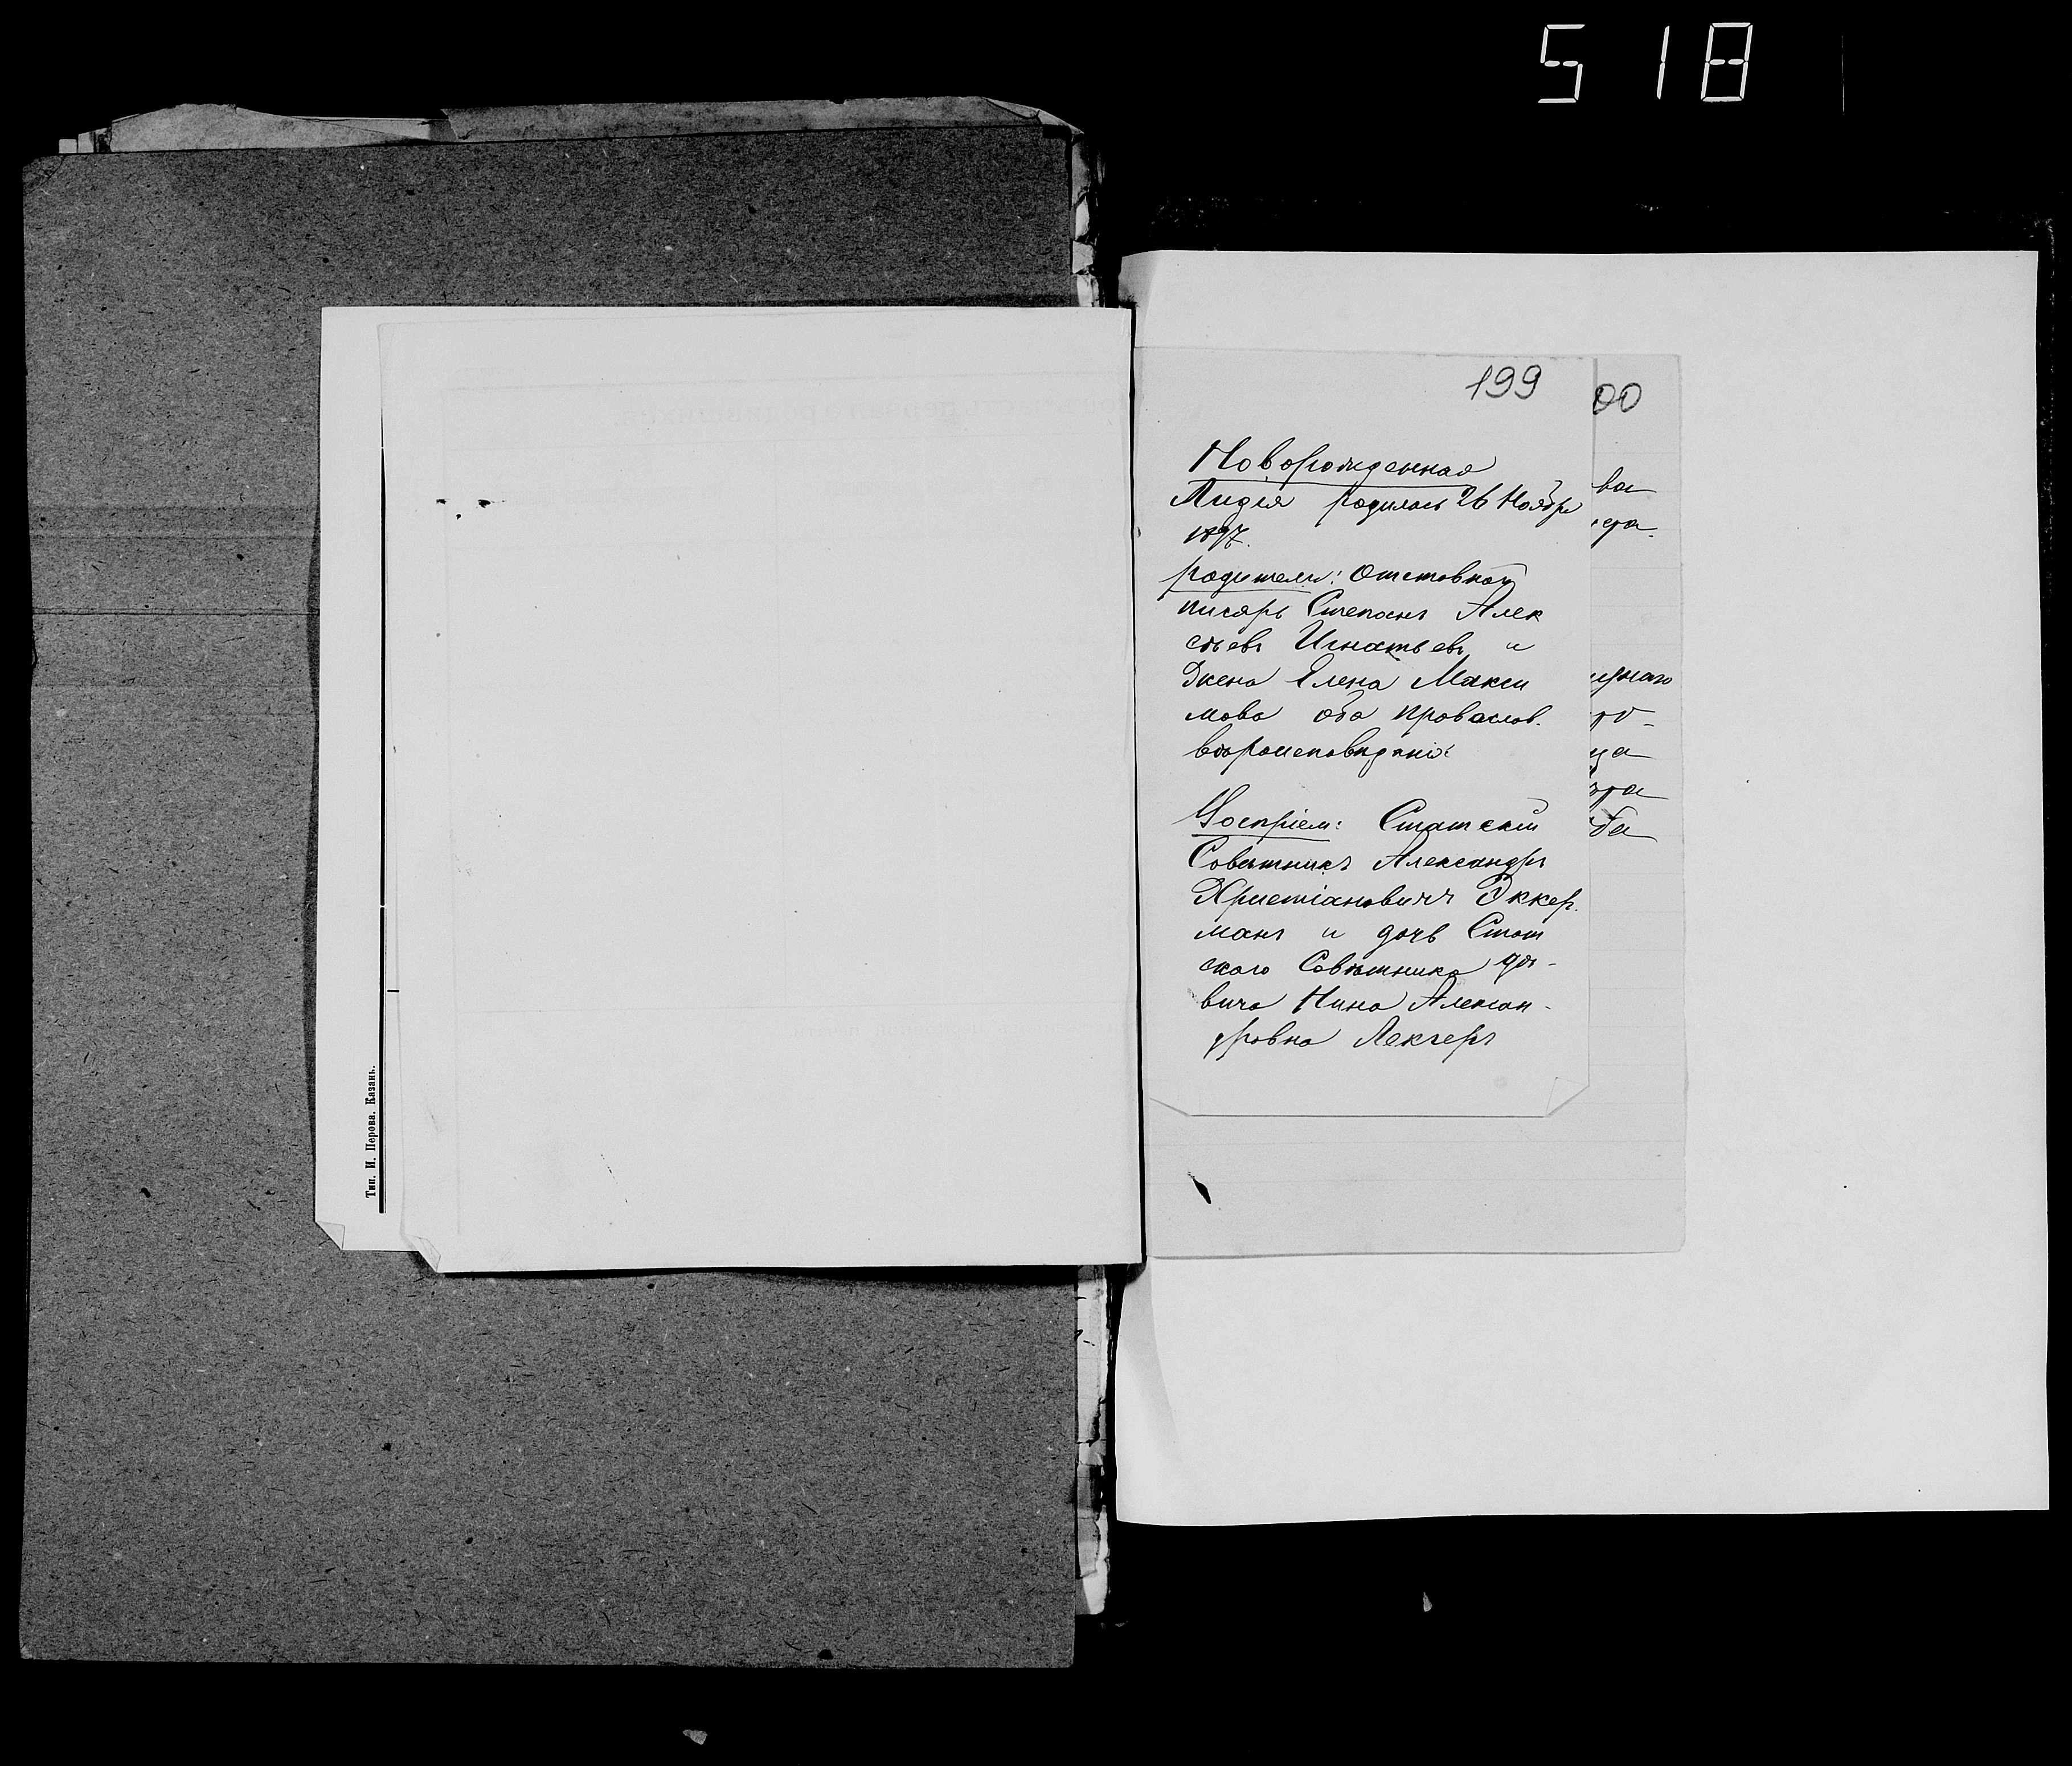 518
199
Новорожденная
Лидiя родилась 26 Ноября
1897.
родители: Отставной
писарь Степанъ Алек
сѣевъ Игнатьевъ и
Жена Елена Макси
мова оба православ.
вѣроисповѣданiя
Воспрiем: Статскiй
Совѣтникъ Александръ
Христiановичъ Эккер.
манъ и дочь Стат
скаго Совѣтника дѣ-
вица Нина Алексан-
дровна Лекгеръ
00
ва
ца
ба
Тип. И. Перова. Казань.